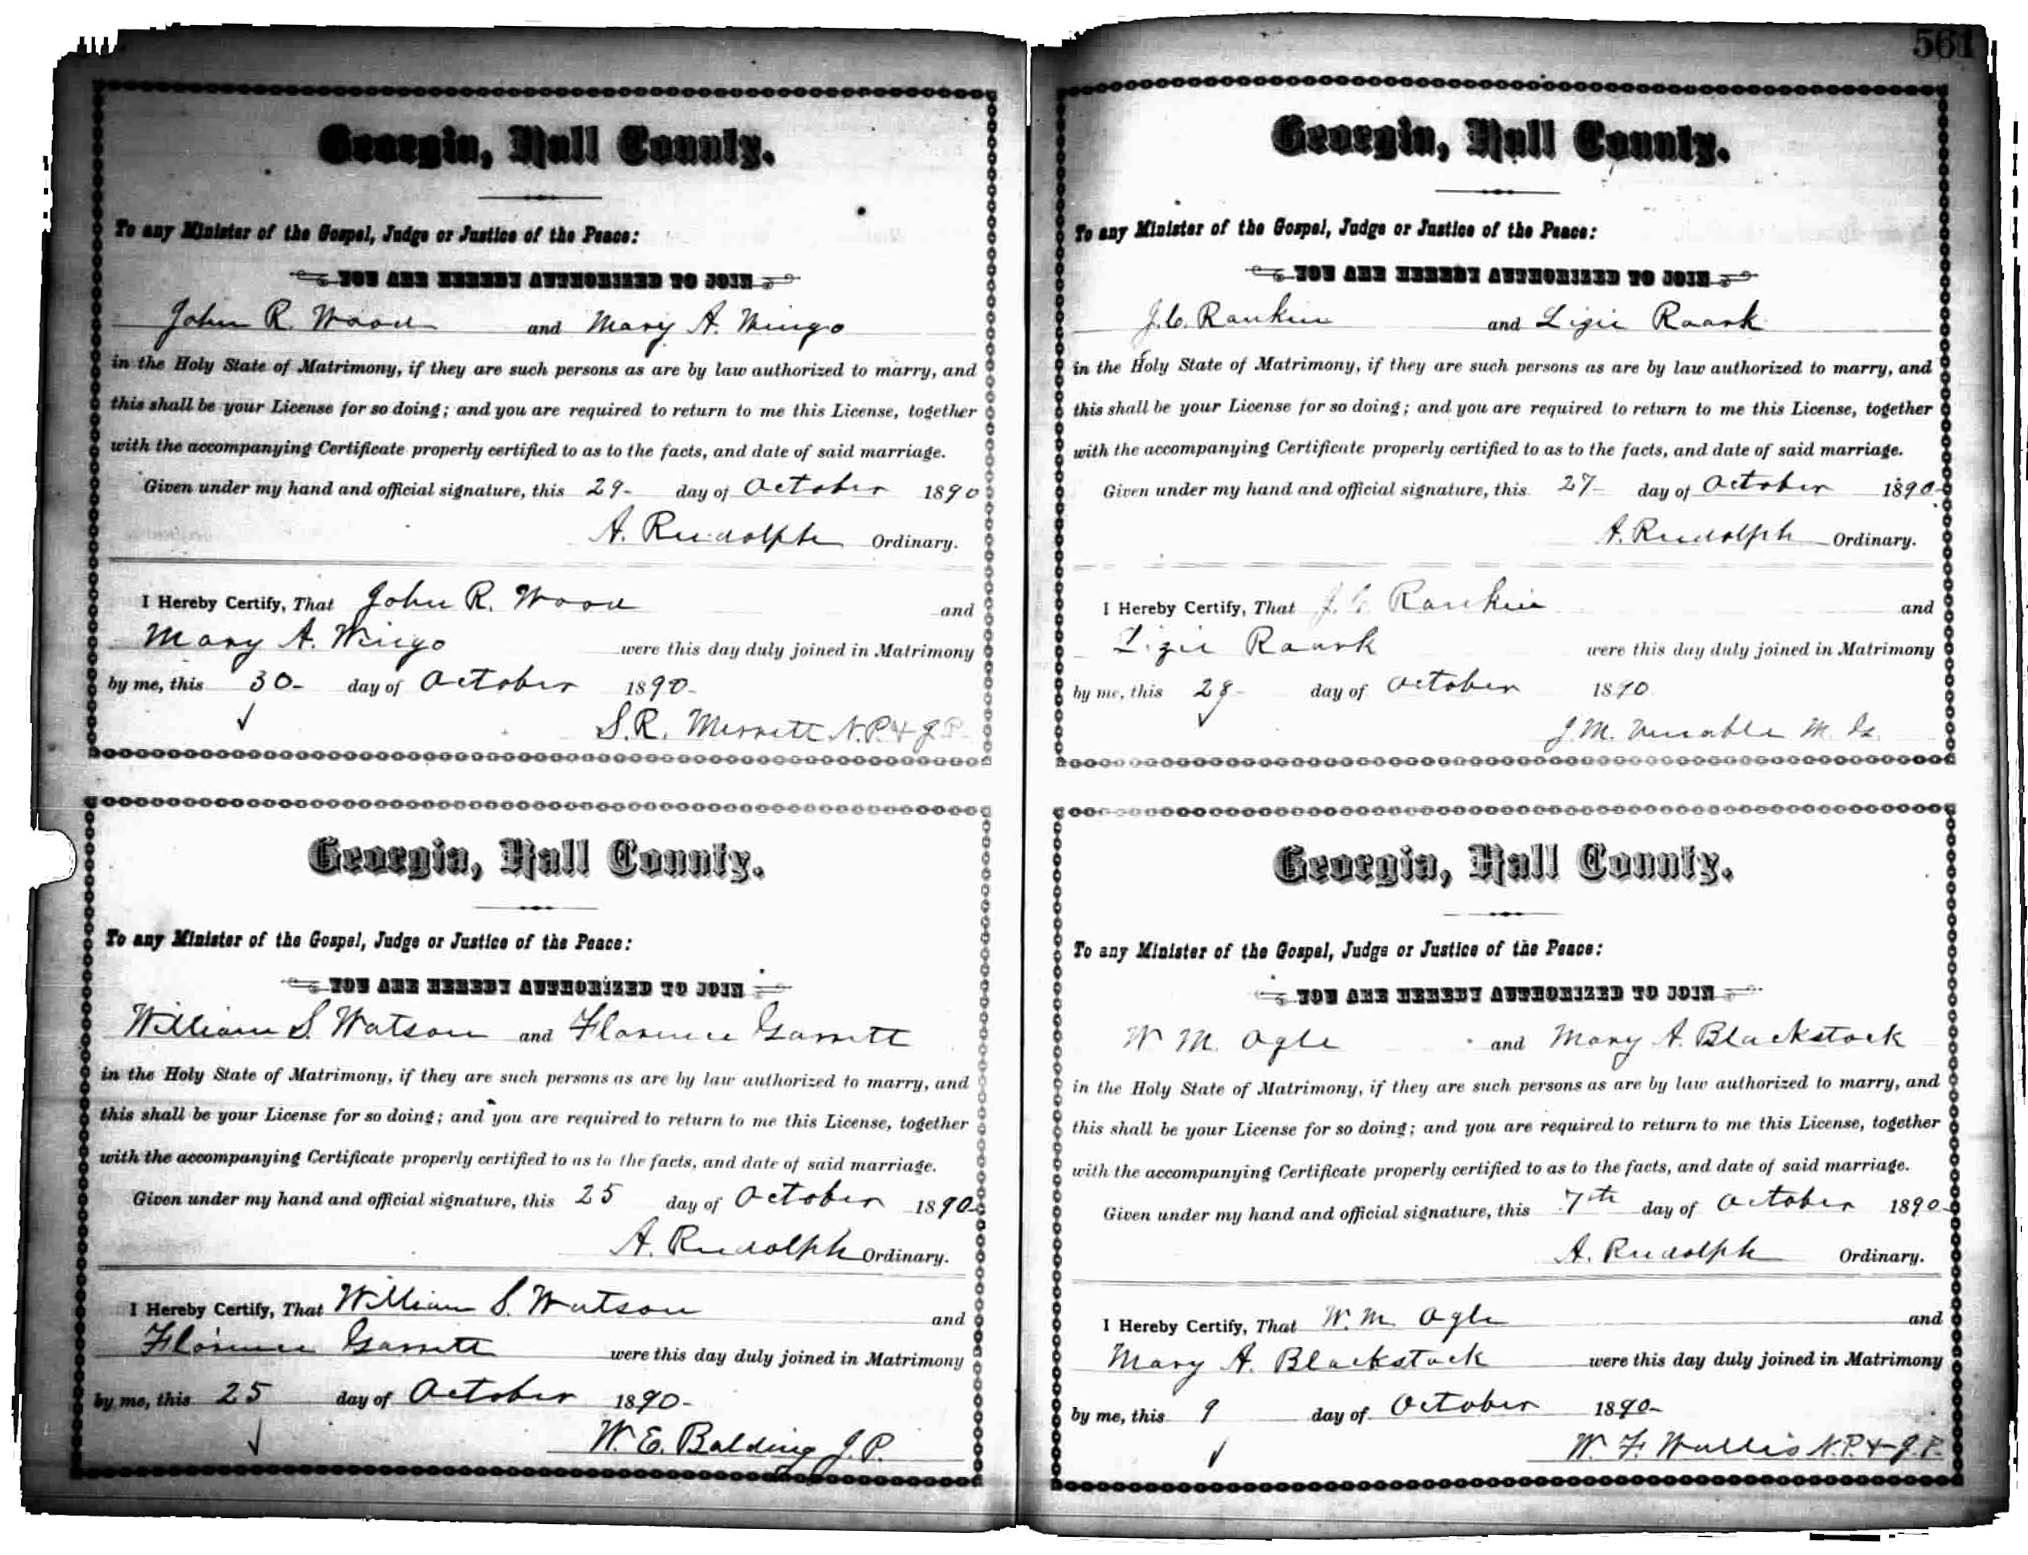 Georgia, Hall County.
To any Minister of the Gospel, Judge or Justice of the Peace:
YOU ARE HEREBY AUTHORIZED TO JOIN
John R. Wood and Mary A. Wingo
in the Holy State of Matrimony, if they are such persons as are by law authorized to marry, and
this shall be your License for so doing; and you are required to return to me this License, together
with the accompanying Certificate properly certified to as to the facts, and date of said marriage.
Given under my hand and official signature, this 29- day of October 1890
A. Rudolph Ordinary.
I Hereby Certify, That John R. Wood and
Mary A. Wingo were this day duly joined in Matrimony
by me, this 30- day of October 1890-
S.R. Merritt N.P. & J.P.
Georgia, Hall County.
To any Minister of the Gospel, Judge or Justice of the Peace:
YOU ARE HEREBY AUTHORIZED TO JOIN
William S. Watson and Florence Garrett
in the Holy State of Matrimony, if they are such persons as are by law authorized to marry, and
this shall be your License for so doing; and you are required to return to me this License, together
with the accompanying Certificate properly certified to as to the facts, and date of said marriage.
Given under my hand and official signature, this 25 day of October 1890-
A. Rudolph Ordinary.
I Hereby Certify, That William S. Watson and
Florence Garrett were this day duly joined in Matrimony
by me, this 25 day of October 1890-
W. E. Balding J.P.
561
Georgia, Hall County.
To any Minister of the Gospel, Judge or Justice of the Peace:
YOU ARE HEREBY AUTHORIZED TO JOIN
J. C. Rankin and Lizie Roark
in the Holy State of Matrimony, if they are such persons as are by law authorized to marry, and
this shall be your License for so doing; and you are required to return to me this License, together
with the accompanying Certificate properly certified to as to the facts, and date of said marriage.
Given under my hand and official signature, this 27- day of October 1890-
A. Rudolph Ordinary.
I Hereby Certify, That J. C. Rankin and
Lizie Roark were this day duly joined in Matrimony
by me, this 28- day of October 1890
J. M. Venable M. G.
Georgia, Hall County.
To any Minister of the Gospel, Judge or Justice of the Peace:
YOU ARE HEREBY AUTHORIZED TO JOIN
W M. Ogle and Mary A. Blackstock
in the Holy State of Matrimony, if they are such persons as are by law authorized to marry, and
this shall be your License for so doing; and you are required to return to me this License, together
with the accompanying Certificate properly certified to as to the facts, and date of said marriage.
Given under my hand and official signature, this 7th day of October 1890-
A. Rudolph Ordinary.
I Hereby Certify, That W. M. Ogle and
Mary A. Blackstock were this day duly joined in Matrimony
by me, this 9 day of October 1890-
W. F. Wallis N.P. & J.P.